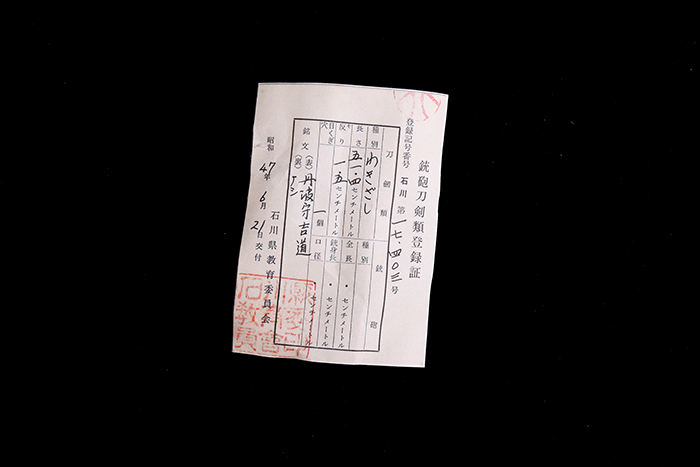 銃砲刀剣類登録証
登録記号番号 石川 第一七・四〇三号
刀剣類
銃砲
種別 わきざし
長さ 五一・四センチメートル
反り 一・五センチメートル
目くぎ穴 一個
種別
全長 ・センチメートル
銃身長 ・センチメートル
口径 ・センチメートル
銘文 (表) 丹波守吉道
(裏) ナシ
昭和47年6月21日交付
石川県教育委員会